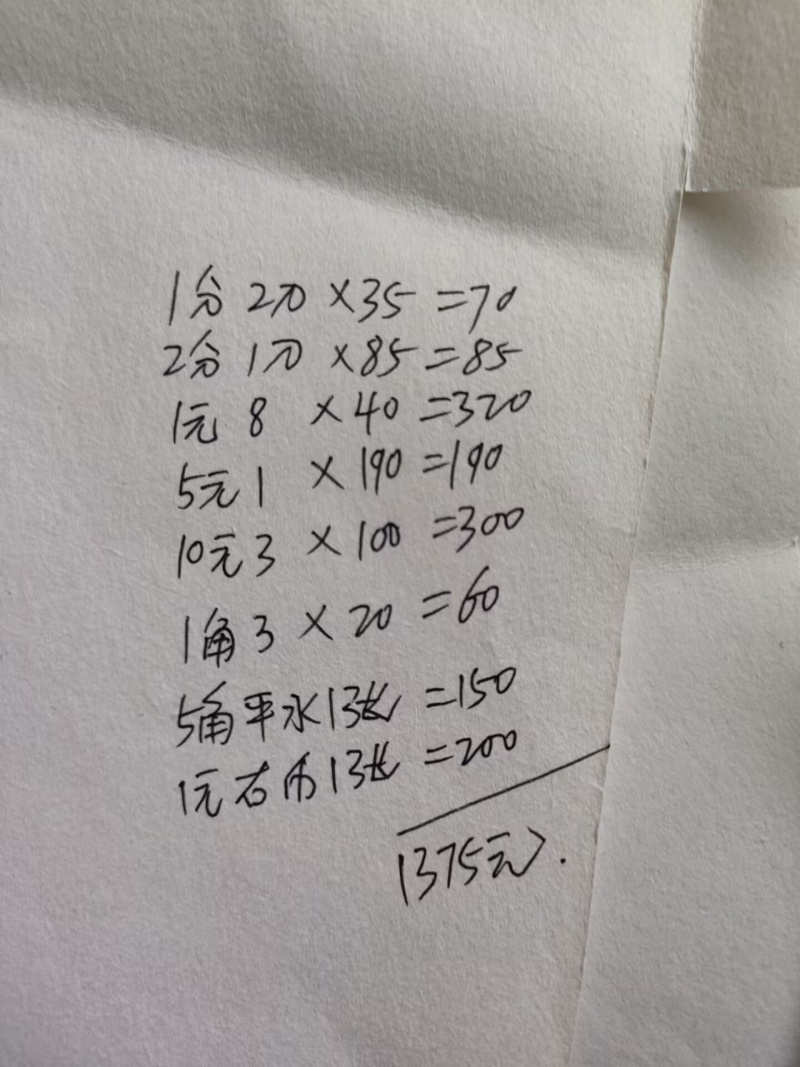 1分 2刀 ×35 =70
2分 1刀 ×85 =85
1元 8 ×40 =320
5元 1 ×190 =190
10元 3 ×100 =300
1角 3 ×20 =60
5角平水 13张 =150
1元古币 13张 =200
1375元.